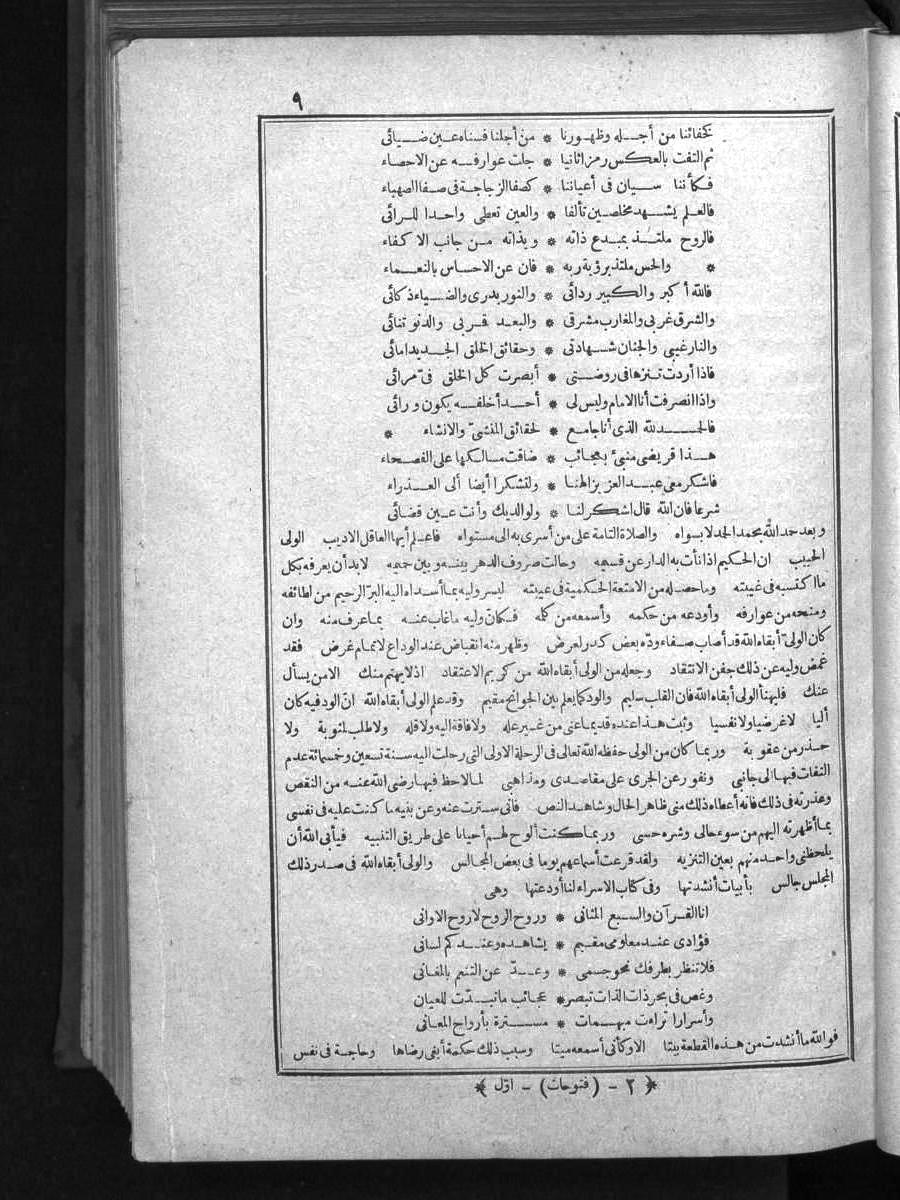 ٩
نخفائنا من أجـله وظهـورنا * من أجلنا فسناه عـين ضـيائى
ثم التفت بالعكس رمزا ثانيا * جلت عوارفـه عن الاحصاء
فكأننا سـيان فى أعياننا * كصفا الزجاجة فى صـفا الصهباء
فالعـلم يشـهد مخلصـين تألفا * والعين تعطى واحـدا للـرائى
فالروح ملتـذ بمبدع ذاته * وبذاته مـن جانب الاكفاء
* والحس ملتذ برؤية ربه * فان عن الاحساس بالنعـماء
فالله أكبر والكبير ردائى * والنور بدرى والضـياء ذكائى
والشرق غربى والمغارب مشرقى * والبعـد قـربى والدنو تنائى
والنار غيبى والجنان شـهادتى * وحقائق الخلق الجـديد امائى
فاذا أردت تـنزها فى روضـتى * أبصرت كل الخلق فى مرائى
واذا انصرفت أنا الامام وليس لى * أحـد أخلفـه يكون ورائى
فالحـمد لله الذى أنا جامـع * لحقائق المنشئ والانشاء *
هـذا قريضى منبئ بعجائب * ضاقت مسالكها على الفصـحاء
فاشكر معى عبـد العزيز الهنا * ولتشكرا أيضا ألى العـذراء
شرعا فان الله قال اشكر لنـا * ولوالديك وأنت عـين قضائى
وبعد حمد الله بحمد الحمد لابسواه والصلاة التامة على من أسرى به الى مستواه فاعـلم أيها العاقل الاديب الولى
الحبيب ان الحكيم اذا نأت به الدار عن قسيمه وحالت صروف الدهر بينـه وبين حميمه لابد أن يعرفه بكل
ما اكتسبه فى غيبته وما حصـله من الامتعة الحكمية فى عيبته ليسر وليه بما أسـداه اليه البرّ الرحيم من لطائفه
ومنحه من عوارفه وأودعه من حكمه وأسمعه من كلمه فـكان وليه ماغاب عنـه بمـا عرف منه وان
كان الولىّ أبقاه الله قد أصاب صـفاء ودّه بعض كدر لعرض وظهر منه انقباض عند الوداع لاتمـام غرض فقد
غمض وليه عن ذلك جفن الانتقاد وجعله من الولى أبقاه الله من كريم الاعتقاد اذ لايهتم منك الامن يسأل
عنك فليهنأ الولى أبقاه الله فان القلب سليم والود كما يعلم بين الجوانح مقيم وقد علم الولى أبقاه الله ان الود فيه كان
أليا لا غرضيا ولا نفسيا وثبت هـذا عنده قديما عنى من غـير عله ولا فاقة اليه ولا قله ولا طلب لمثوبة ولا
حـذر من عقوبة وربمـا كان من الولى حفظه الله تعالى فى الرحلة الاولى التى رحلت اليه سـنة تسعين وخمسمائة عدم
التفات فيها الى جانبى ونفور عن الجرى على مقاصدى ومذاهبى لما لاحظ فيها رضى الله عنـه من النقص
وعذرته فى ذلك فانه أعطاه ذلك منى ظاهر الحال وشاهد النص فانى سـترت عنه وعن بنيه ما كنت عليه فى نفسى
بما أظهرته اليهم من سوء حالى وشره حسى وربمـا كنت ألوح لهـم أحيانا على طريق التنبيه فيأبى الله أن
يلحظنى واحـد منهم بعين التنزيه ولقد قرعت أسماعهم يوما فى بعض المجالس والولى أبقاه الله فى صـدر ذلك
المجلس جالس بأبيات أنشدتها وفى كتاب الاسراء لنا أودعتها وهى
انا القـرآن والسـبع المثانى * وروح الروح لا روح الاوانى
فؤادى عنـد معلومى مقـيم * يشاهـده وعنـدكم لسانى
فلا تنظر بطرفك نحو جسمى * وعـدّ عن التنعم بالمغـانى
وغص فى بحر ذات الذات تبصر * عجائب ما تبـدّت للعيان
وأسرارا تراءت مبهـمات * مسـتترة بأرواح المعـانى
فو الله ما أنشدت من هـذه القطعة بيتا الا وكأنى أسمعه ميتا وسبب ذلك حكمة أبغى رضاها وحاجـة فى نفس
﴿ ٢ - (فتوحات) - اوّل ﴾